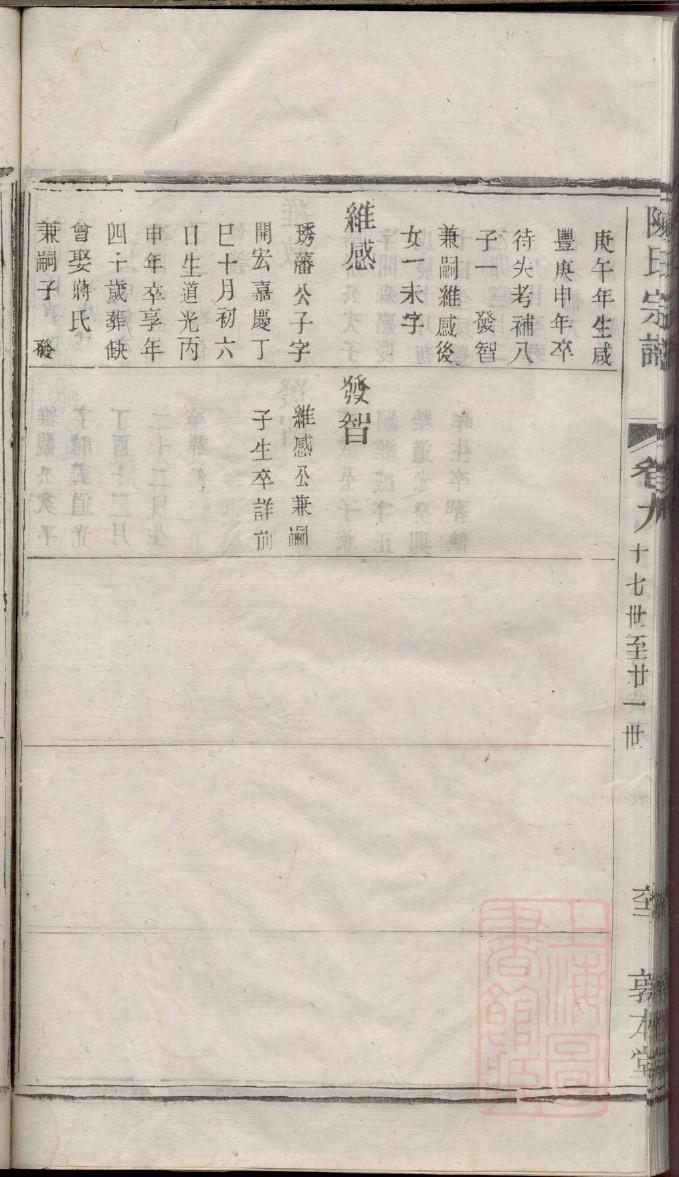 陳氏宗譜
卷九
十七世至廿一世
敦本堂
庚午年生咸
豐庚申年卒
待失考補八
子一發智
兼嗣維感後
女一未字
維感
琇藩公子字
開宏嘉慶丁
巳十月初六
日生道光丙
申年卒享年
四十歲葬缺
會娶蔣氏
兼嗣子發
發智
維感公兼嗣
子生卒詳前
上海圖
書館藏